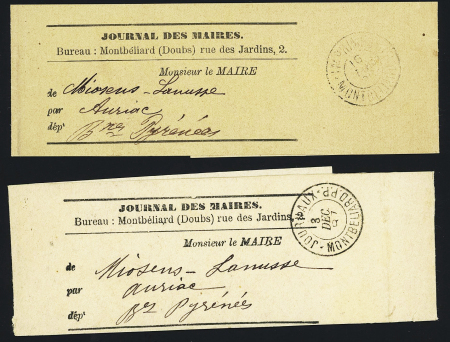 JOURNAL DES MAIRES.
Bureau : Montbéliard (Doubs) rue des Jardins, 2.
Monsieur le MAIRE
de Miosens-Lanusse
par Auriac
dépt Bses Pyrénées
MONTBELIARD
JOURNAL DES MAIRES.
Bureau : Montbéliard (Doubs) rue des Jardins,
Monsieur le MAIRE
de Miosens-Lanusse
par auriac
dépt Bses Pyrénées
JOURNAUX-PP- MONTBELIARD
13
DEC